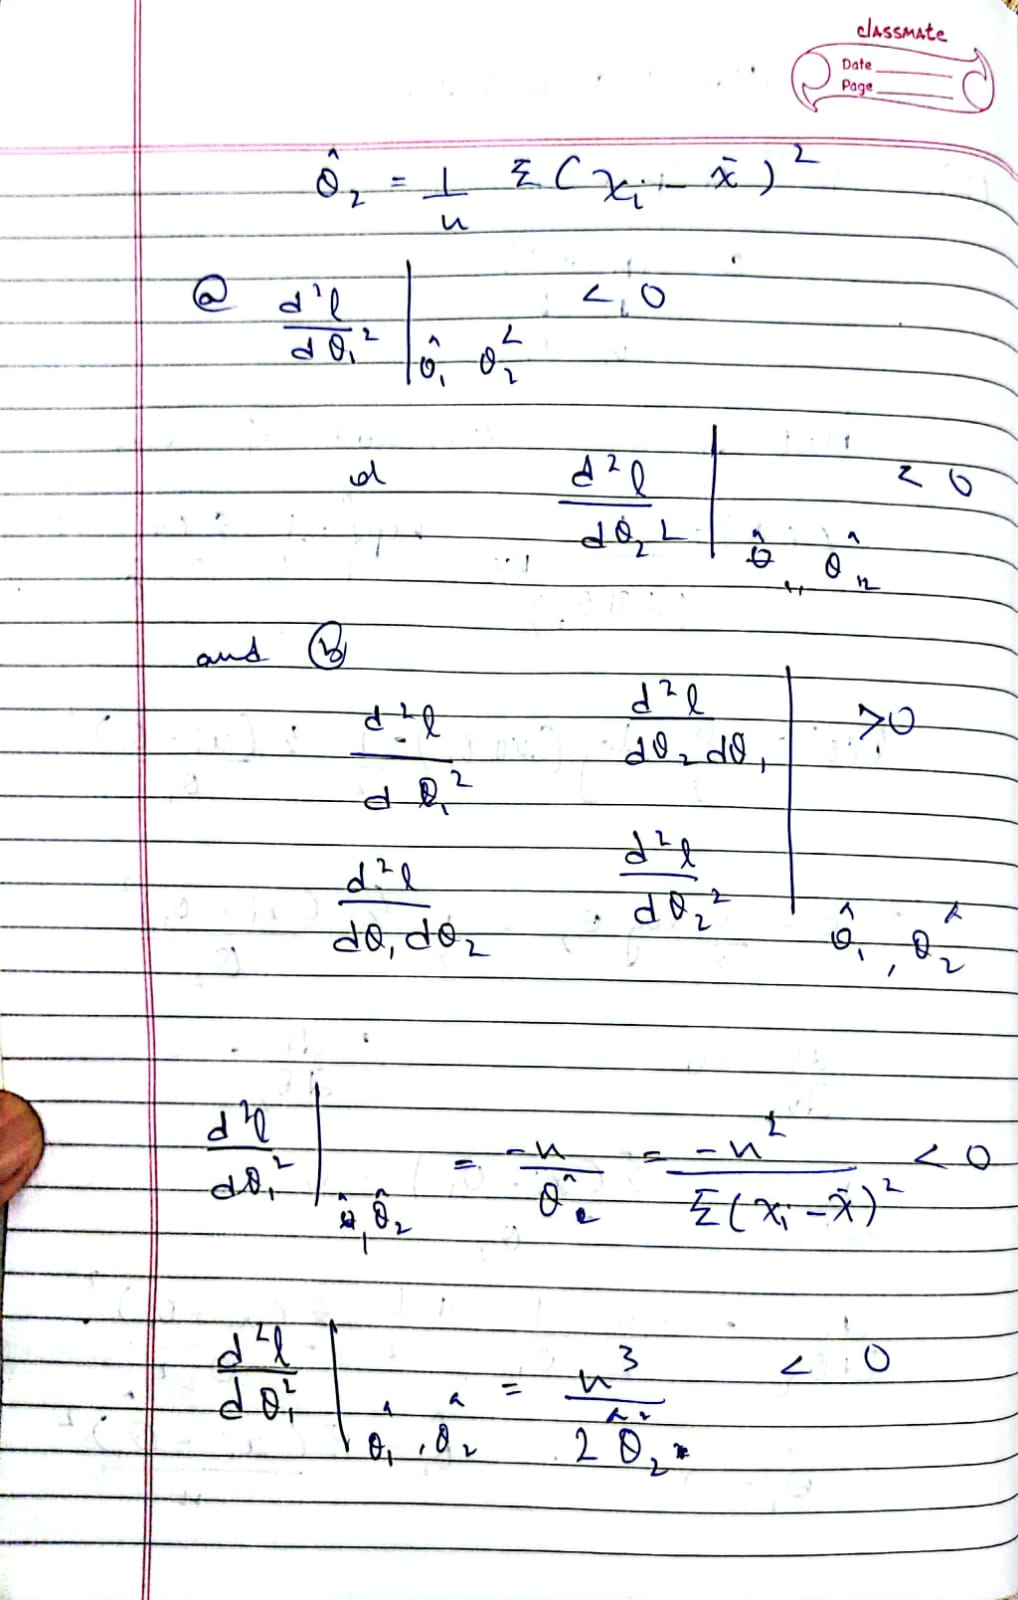 classmate
Date
Page
θ̂₂ = 1/n Σ(xᵢ - x̄)²
ⓐ d²l/dθ₁² | θ̂₁ θ̂₂ < 0
d d²l/dθ₂² | θ̂₁, θ̂₂ < 0
and ⓑ
d²l/dθ₁² d²l/dθ₂dθ₁ | > 0
d²l/dθ₁dθ₂ d²l/dθ₂² | θ̂₁, θ̂₂
d²l/dθ₁² | θ̂₁, θ̂₂ = -n/θ̂₂ = -n²/Σ(xᵢ - x̄)² < 0
d²l/dθ₁² | θ̂₁, θ̂₂ = n³/2θ̂₂² < 0